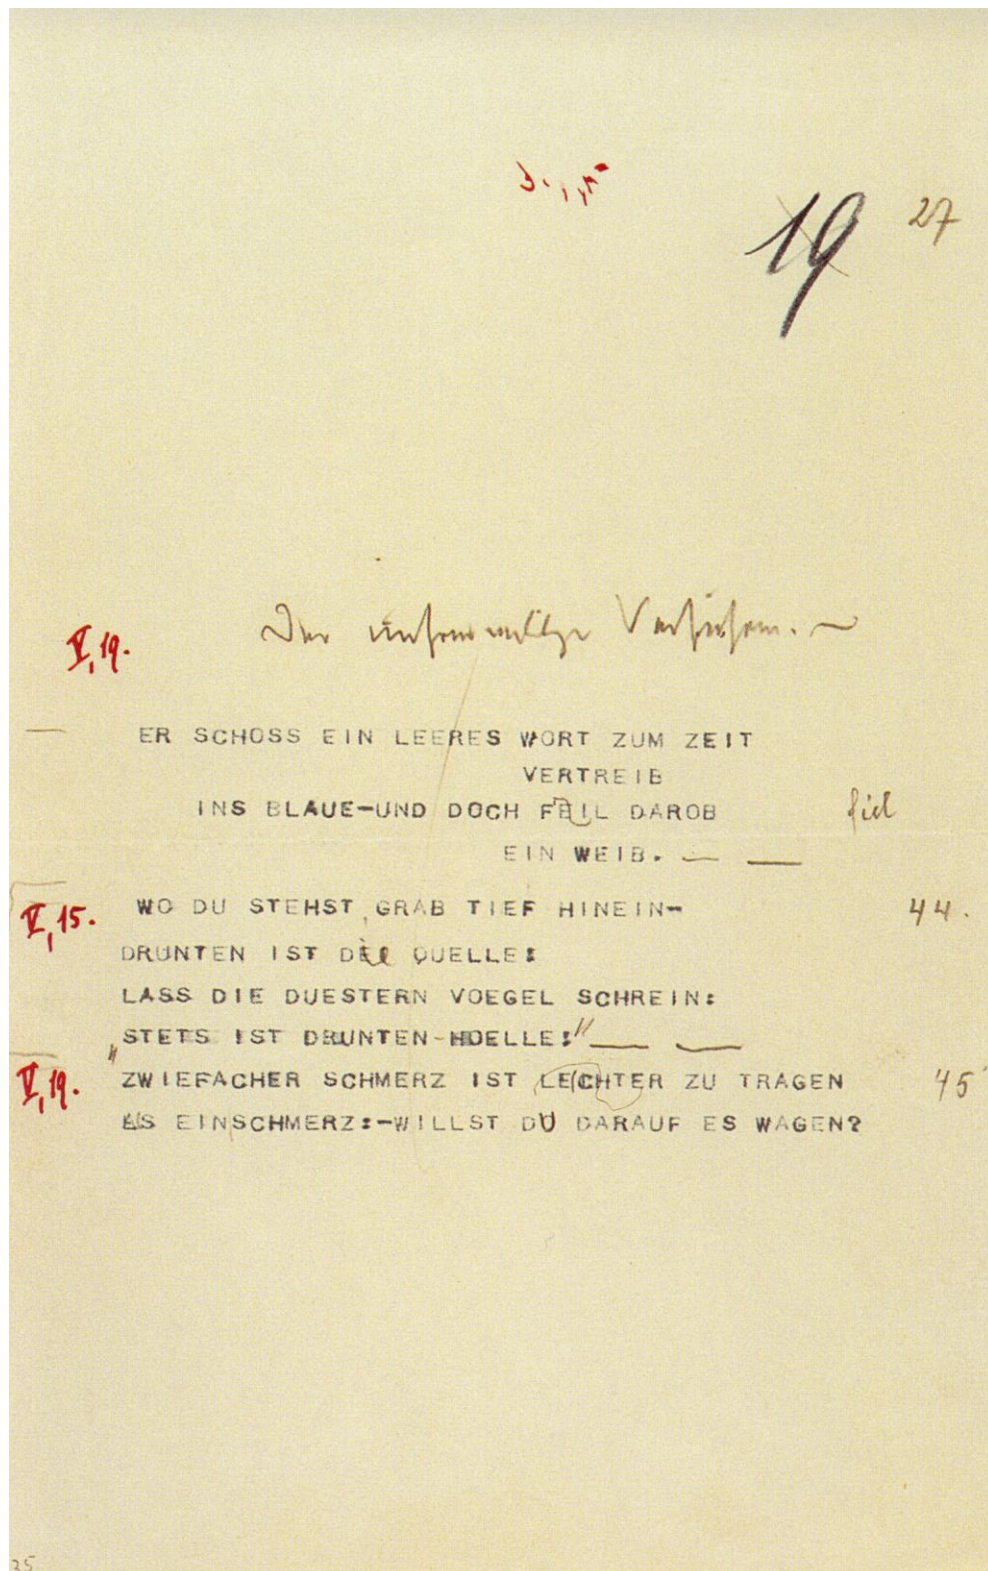 19 27
Der unfreiwillige Verführer. —
V, 19.
— ER SCHOSS EIN LEERES WORT ZUM ZEIT
VERTREIB
INS BLAUE-UND DOCH FEIL DAROB fiel
EIN WEIB. — —
V, 15. WO DU STEHST, GRAB TIEF HINEIN- 44.
DRUNTEN IST DIE QUELLE:
LASS DIE DUESTERN VOEGEL SCHREIN:
„STETS IST DRUNTEN-HOELLE:" — —
V, 19. ZWIEFACHER SCHMERZ IST LEICHTER ZU TRAGEN 45
ALS EINSCHMERZ:-WILLST DU DARAUF ES WAGEN?
25